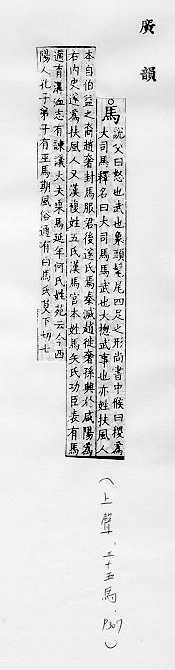 廣韻
馬
說文曰怒也武也象頭髦尾四足之形尚書中候曰稷為
大司馬釋名曰大司馬馬武也大揔武事也亦姓扶風人
本自伯益之裔趙奢封馬服君後遂氏焉秦滅趙徙奢孫興於咸陽為
右內史遂為扶風人又漢複姓五氏漢馬宮本姓馬矢氏功臣表有馬
適育溝洫志有諫議大夫乗馬延年何氏姓苑云今西
陽人孔子弟子有巫馬期風俗通有白馬氏莫下切七
（上聲，三十五馬，P307）